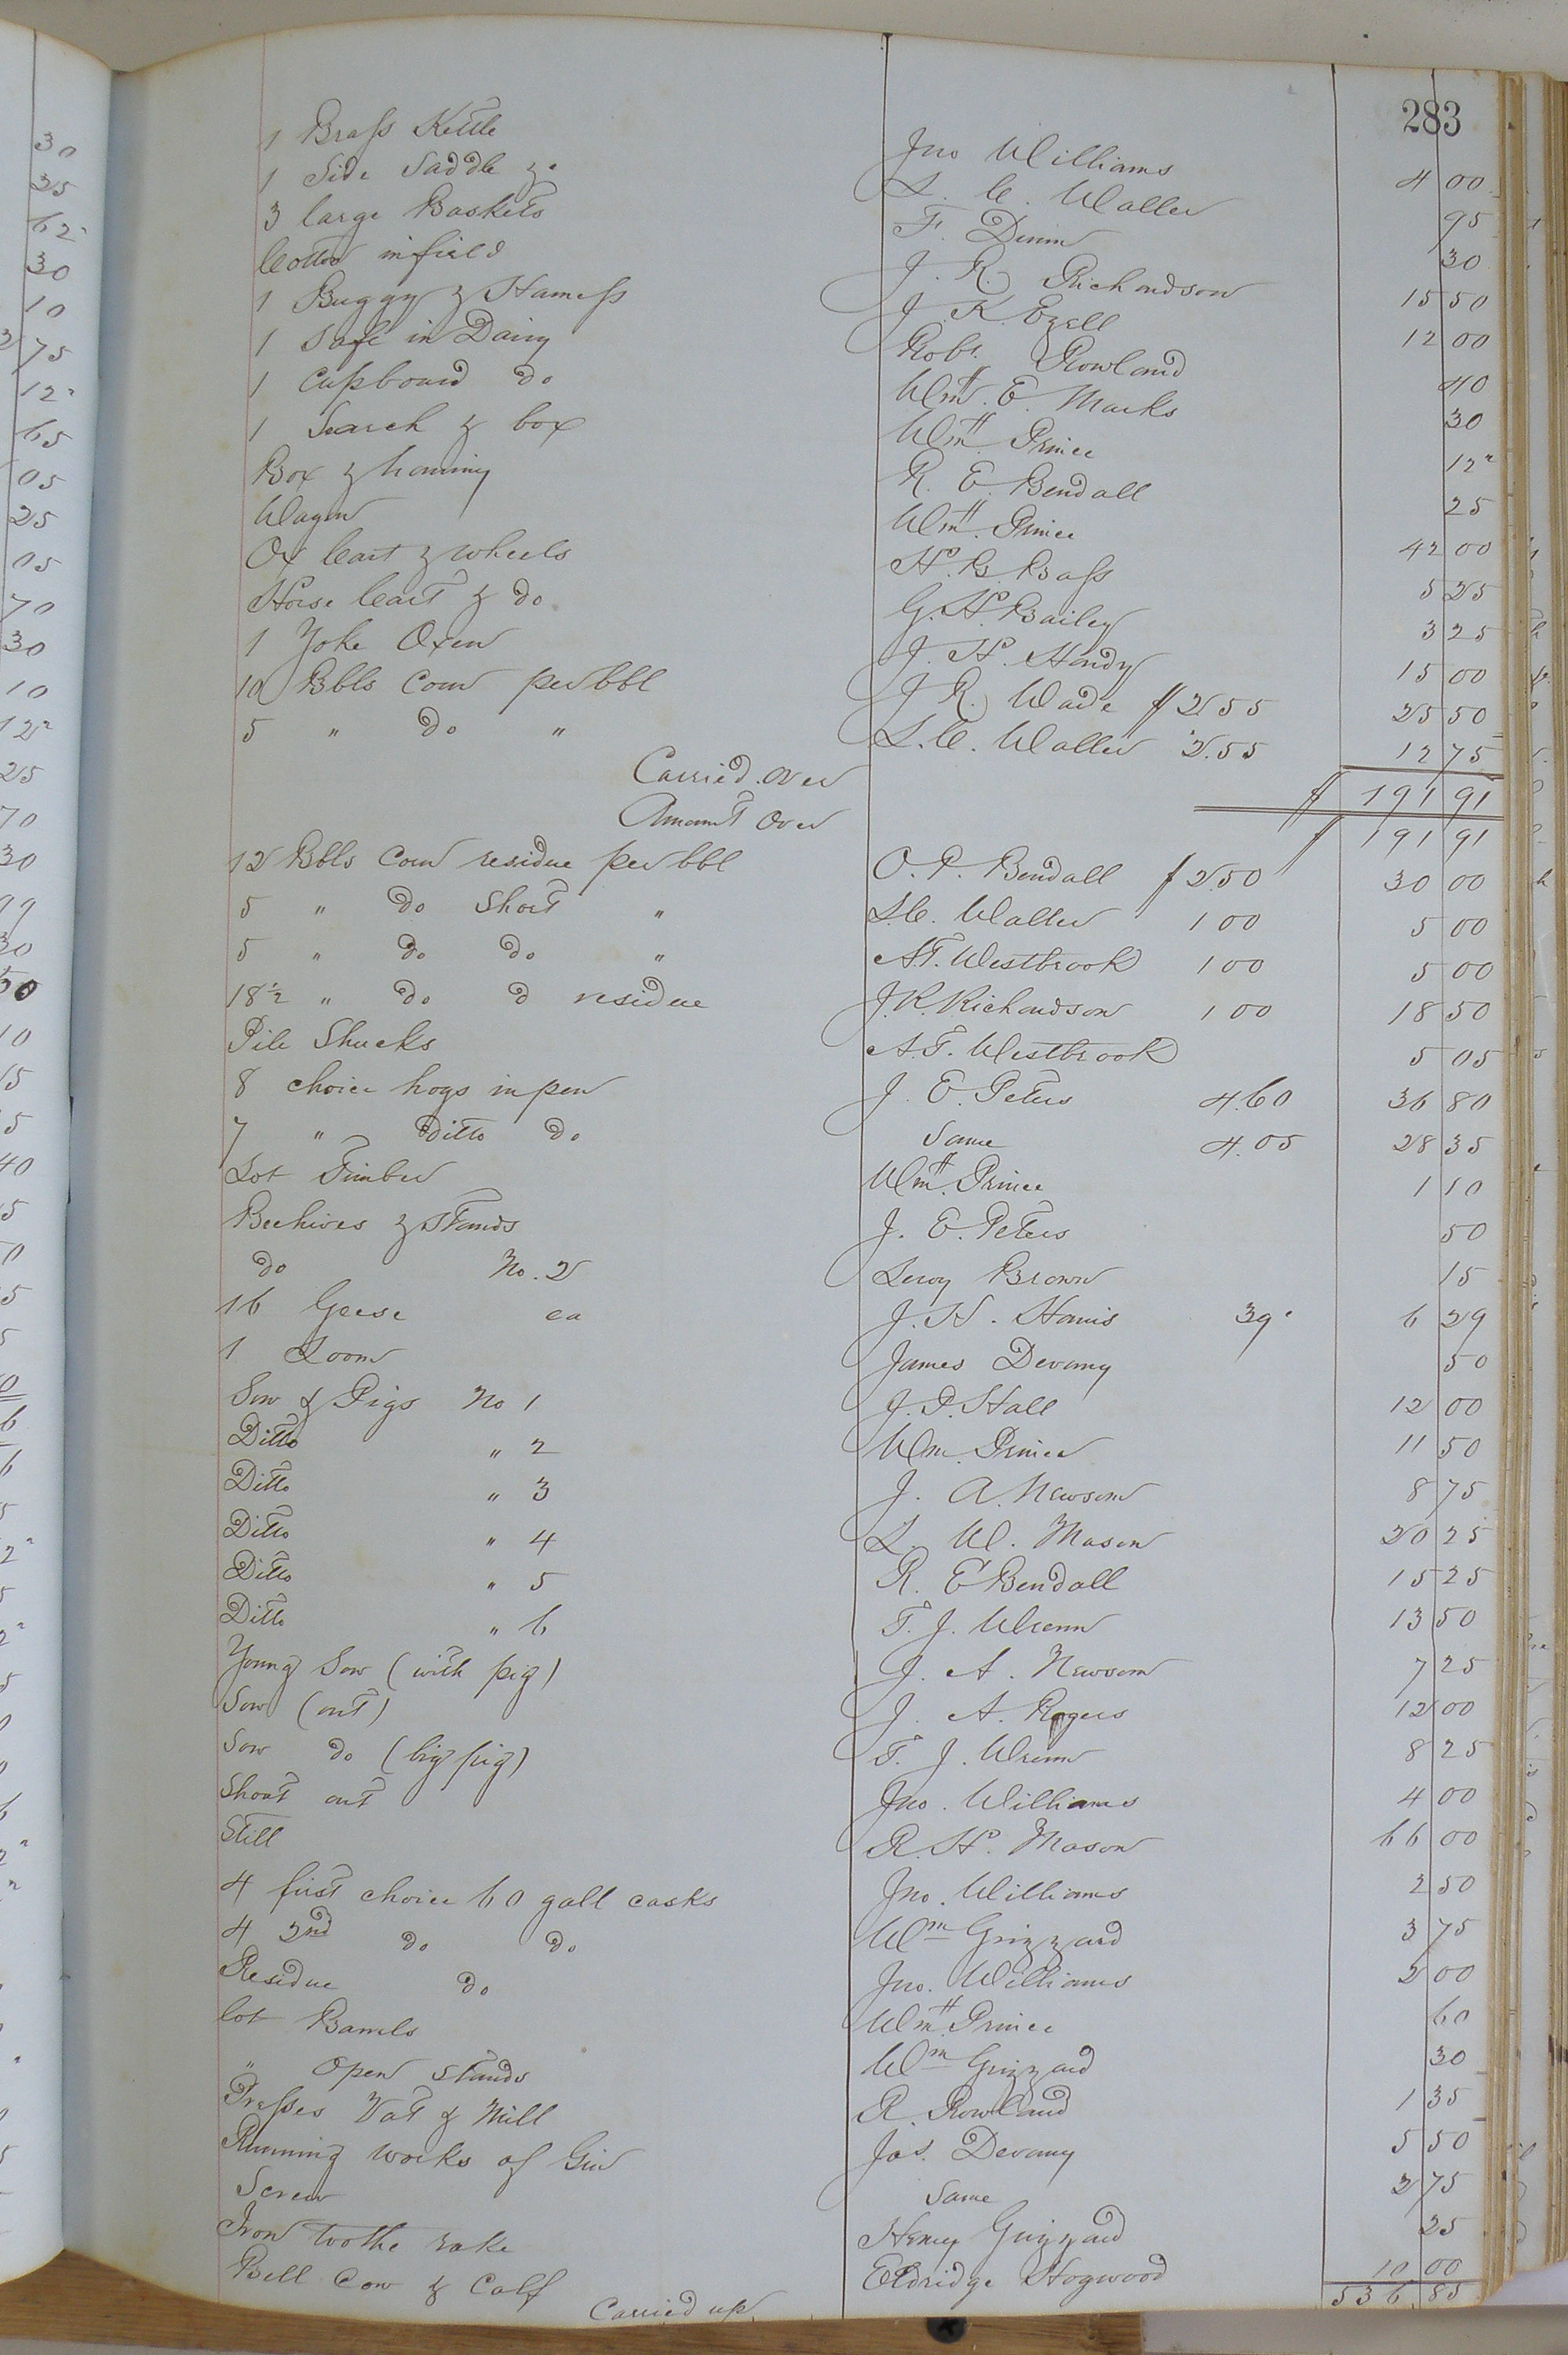 283
1 Brass Kettle Jno Williams 4 00
1 Side Saddle &c L. C. Waller 95
3 large Baskets F. Dunn 30
Cotton in field J. R. Richardson 15 50
1 Buggy & Harness J. K. Ezell 12 00
1 Safe in Dairy Robt. Rowland 40
1 Cupboard do Wm. E. Marks 30
1 Search & box Wm H Prince 12"
Box & hominy R. E. Bendall 25
Wagon Wm H Prince 42 00
Ox Cart & wheels H. B. Bass 5 25
Horse Cart & do G. H. Bailey 3 25
1 Yoke Oxen J. H. Handy 15 00
10 Bbls Corn per bbl J R. Wade $2 55 25 50
5 " do " L. C. Waller 2.55 12 75
Carried over $ 191 91
Amount over $ 191 91
12 Bbls Corn residue per bbl O. P. Bendall $2.50 30 00
5 " do Short " L.C. Waller 1 00 5 00
5 " do do " A.T. Westbrook 1 00 5 00
18 1/2 " do d residue J. R. Richardson 1 00 18 50
Pile Shucks A.T. Westbrook 5 05
8 choice hogs in pen J. E. Peters 4.60 36 80
7 " Ditto do Same 4.05 28 35
Lot Timber Wm H Prince 1 10
Beehives & Stands J. E. Peters 50
do No. 2 Leroy Brown 15
16 Geese ea J. H. Harris 39" 6 29
1 Loom James Devany 50
Sow & Pigs No 1 J. P. Hall 12 00
Ditto " 2 Wm Prince 11 50
Ditto " 3 J. A. Newsom 8 75
Ditto " 4 L. W. Mason 20 25
Ditto " 5 R. E Bendall 15 25
Ditto " 6 T. J. Wrenn 13 50
Young Sow (with pig) J. A. Newsom 7 25
Sow (out) J. A. Rogers 12 00
Sow do (big pig) T. J. Wrenn 8 25
Shoat out Jno. Williams 4 00
Still R. H. Mason 66 00
4 first choice 60 gall casks Jno. Williams 2 50
4 2nd do do Wm Grizzard 3 75
Residue do Jno. Williams 2 00
lot Barrels Wm H Prince 60
" Open Stands Wm Grizzard 30
Presses Vat & Mill R. Rowland 1 35
Running works of Gin Jas. Devany 5 50
Screw Same 2 75
Iron toothe rake Henry Grizzard 25
Bell Cow & Calf Eldridge Hogwood 10 00
Carried up 536 85